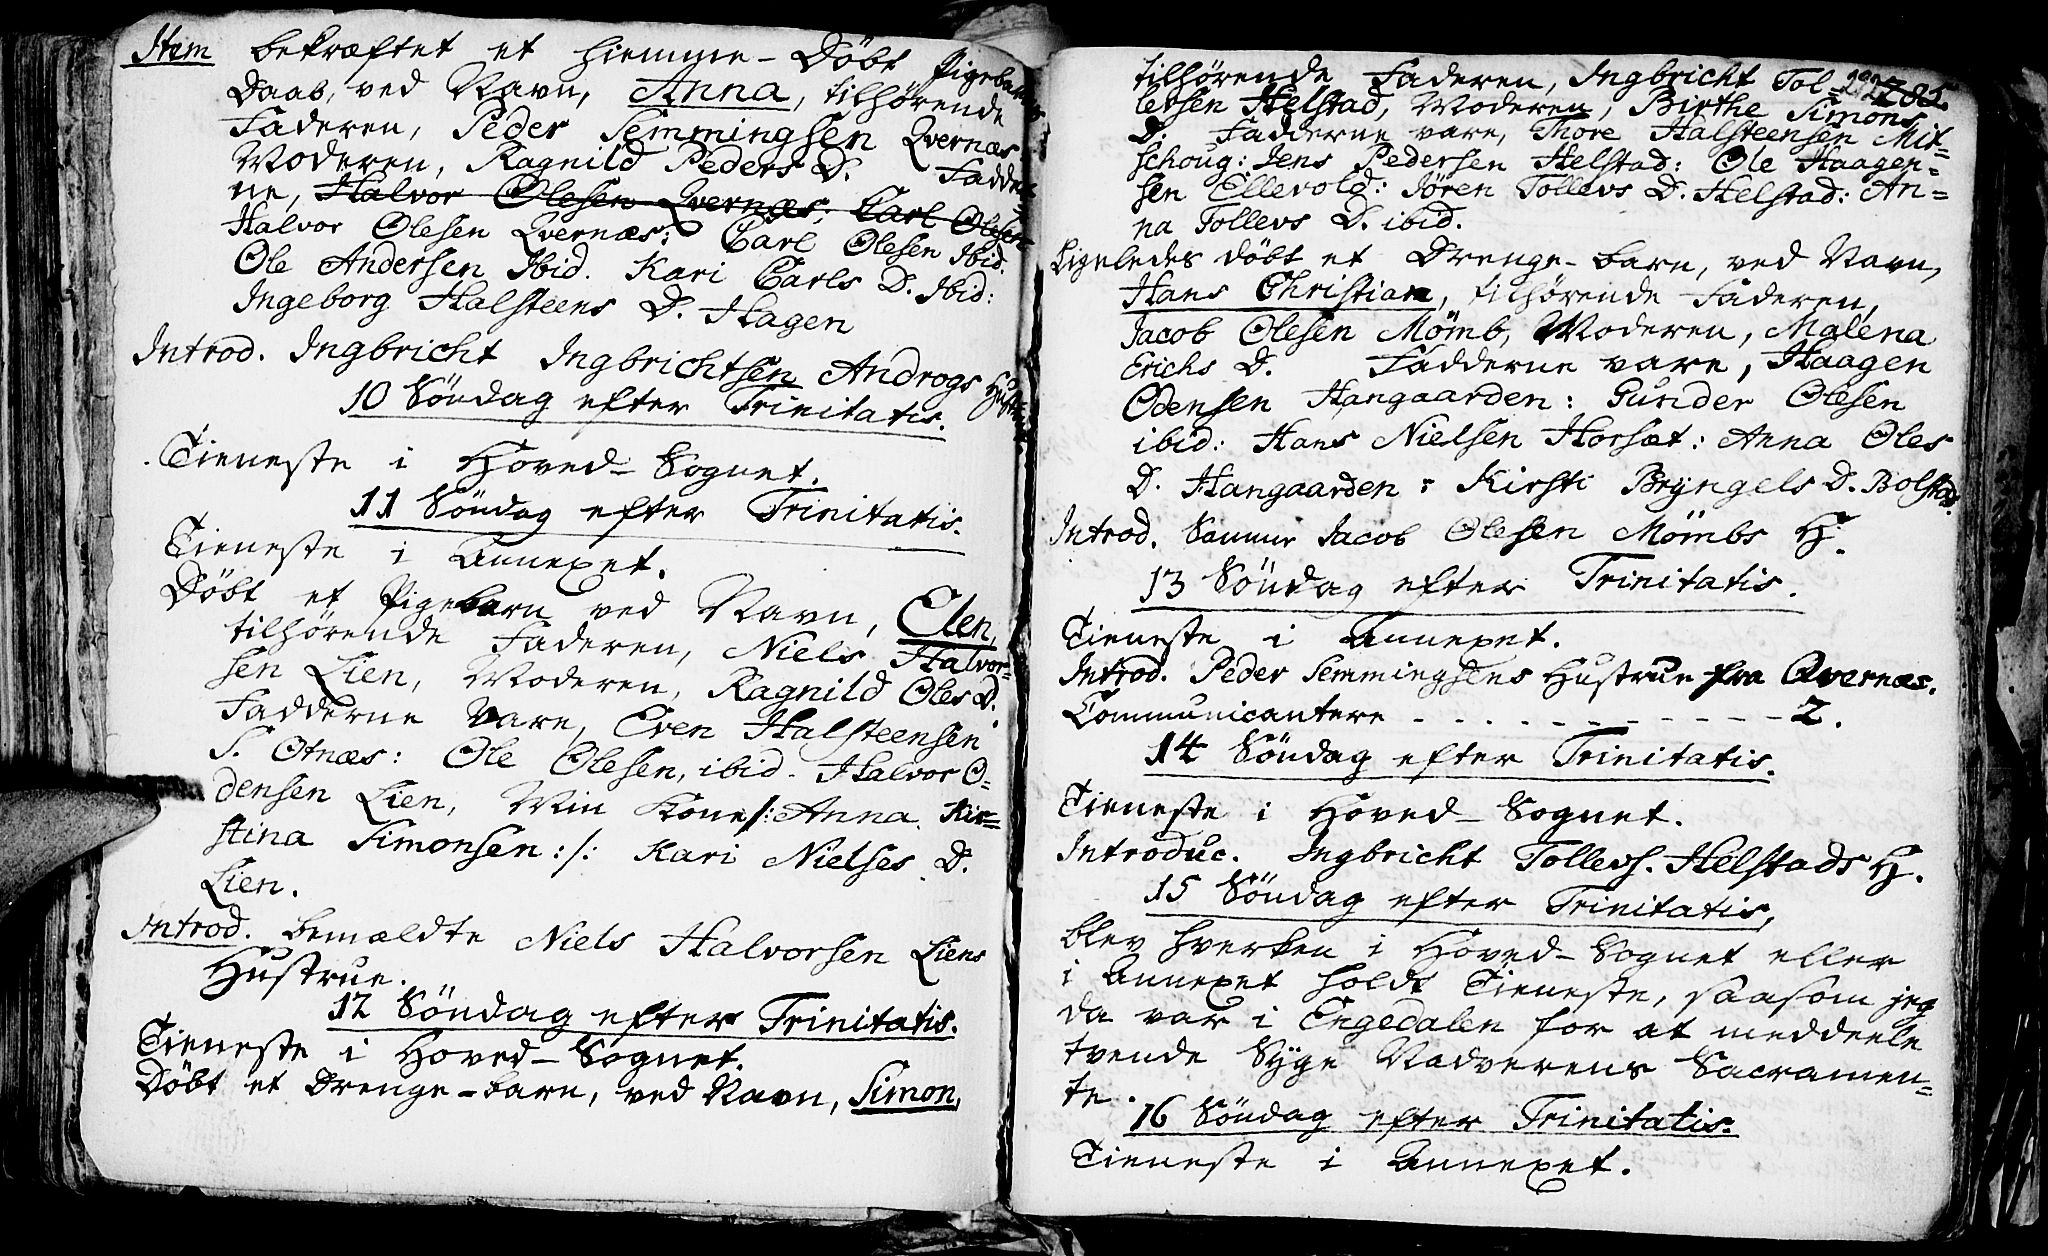 Item bekræftet et hiemme-Döbt Pigebarns
Daab, ved Navn, Anna, tilhørende
Faderen, Peder Semmingsen Qvernæs
Moderen, Ragnild Peders D. Fadder-
ne, Halvor Olesen Qvernæs; Carl Olesen
Halvor Olesen Qvernæs; Carl Olesen Ibid.
Ole Andersen Ibid. Kari Carls D. Ibid:
Ingeborg Halsteens D. Hagen
Introd. Ingbricht Ingbrichtsen Androgs Hustr
10 Söndag efter Trinitatis.
Tieneste i Hoved-Sognet.
11 Söndag efter Trinitatis.
Tieneste i Annexet.
Döbt et Pigebarn ved Navn, Elen,
tilhørende Faderen, Niels Halvor=
sen Lien, Moderen, Ragnild Oles D.
Fadderne vare, Even Halsteensen
S. Otnæs: Ole Olesen, ibid. Halvor O=
densen Lien, Min Kone /: Anna Kir=
stina Simonsen :/: Kari Nielses D.
Lien.
Introd. bemældte Niels Halvorsen Liens
Hustrue.
12 Söndag efter Trinitatis.
Tieneste i Hoved-Sognet.
Döbt et Drenge-barn, ved Navn, Simon,
285.
tilhörende Faderen, Ingbricht Tol=
levsen Helstad, Moderen, Birthe Simons
D. Fadderne vare, Thore Halsteensen Mit=
schoug: Jens Pedersen Helstad: Ole Haagen=
sen Ellevold: Jören Tollevs D. Helstad: An=
na Tollevs D. ibid.
Ligeledes döbt et Drenge-barn, ved Navn,
Hans Christian, tilhörende Faderen,
Jacob Olesen Mömb, Moderen, Malena
Erichs D. Fadderne vare, Haagen
Odensen Hangaarden: Gunder Olesen
ibid: Hans Nielsen Horsæt: Anna Oles
D. Hangaarden: Kirsti Bryngels D. Bolstad.
Introd. Samme Jacob Olesen Mömbs H.
13 Söndag efter Trinitatis.
Tieneste i Annexet.
Introd. Peder Semmingsens Hustrue fra Qvernæs.
Communicantere - - - - - - - - - - - 2.
14 Söndag efter Trinitatis.
Tieneste i Hoved-Sognet.
Introduc. Ingbricht Tollevs. Helstads H.
15 Söndag efter Trinitatis,
blev hverken i Hoved-Sognet eller
i Annexet holdt Tieneste, saasom jeg
da var i Engedalen for at meddeele
tvende Syge Nadverens Sacramen=
te.
16 Söndag efter Trinitatis.
Tieneste i Annexet.